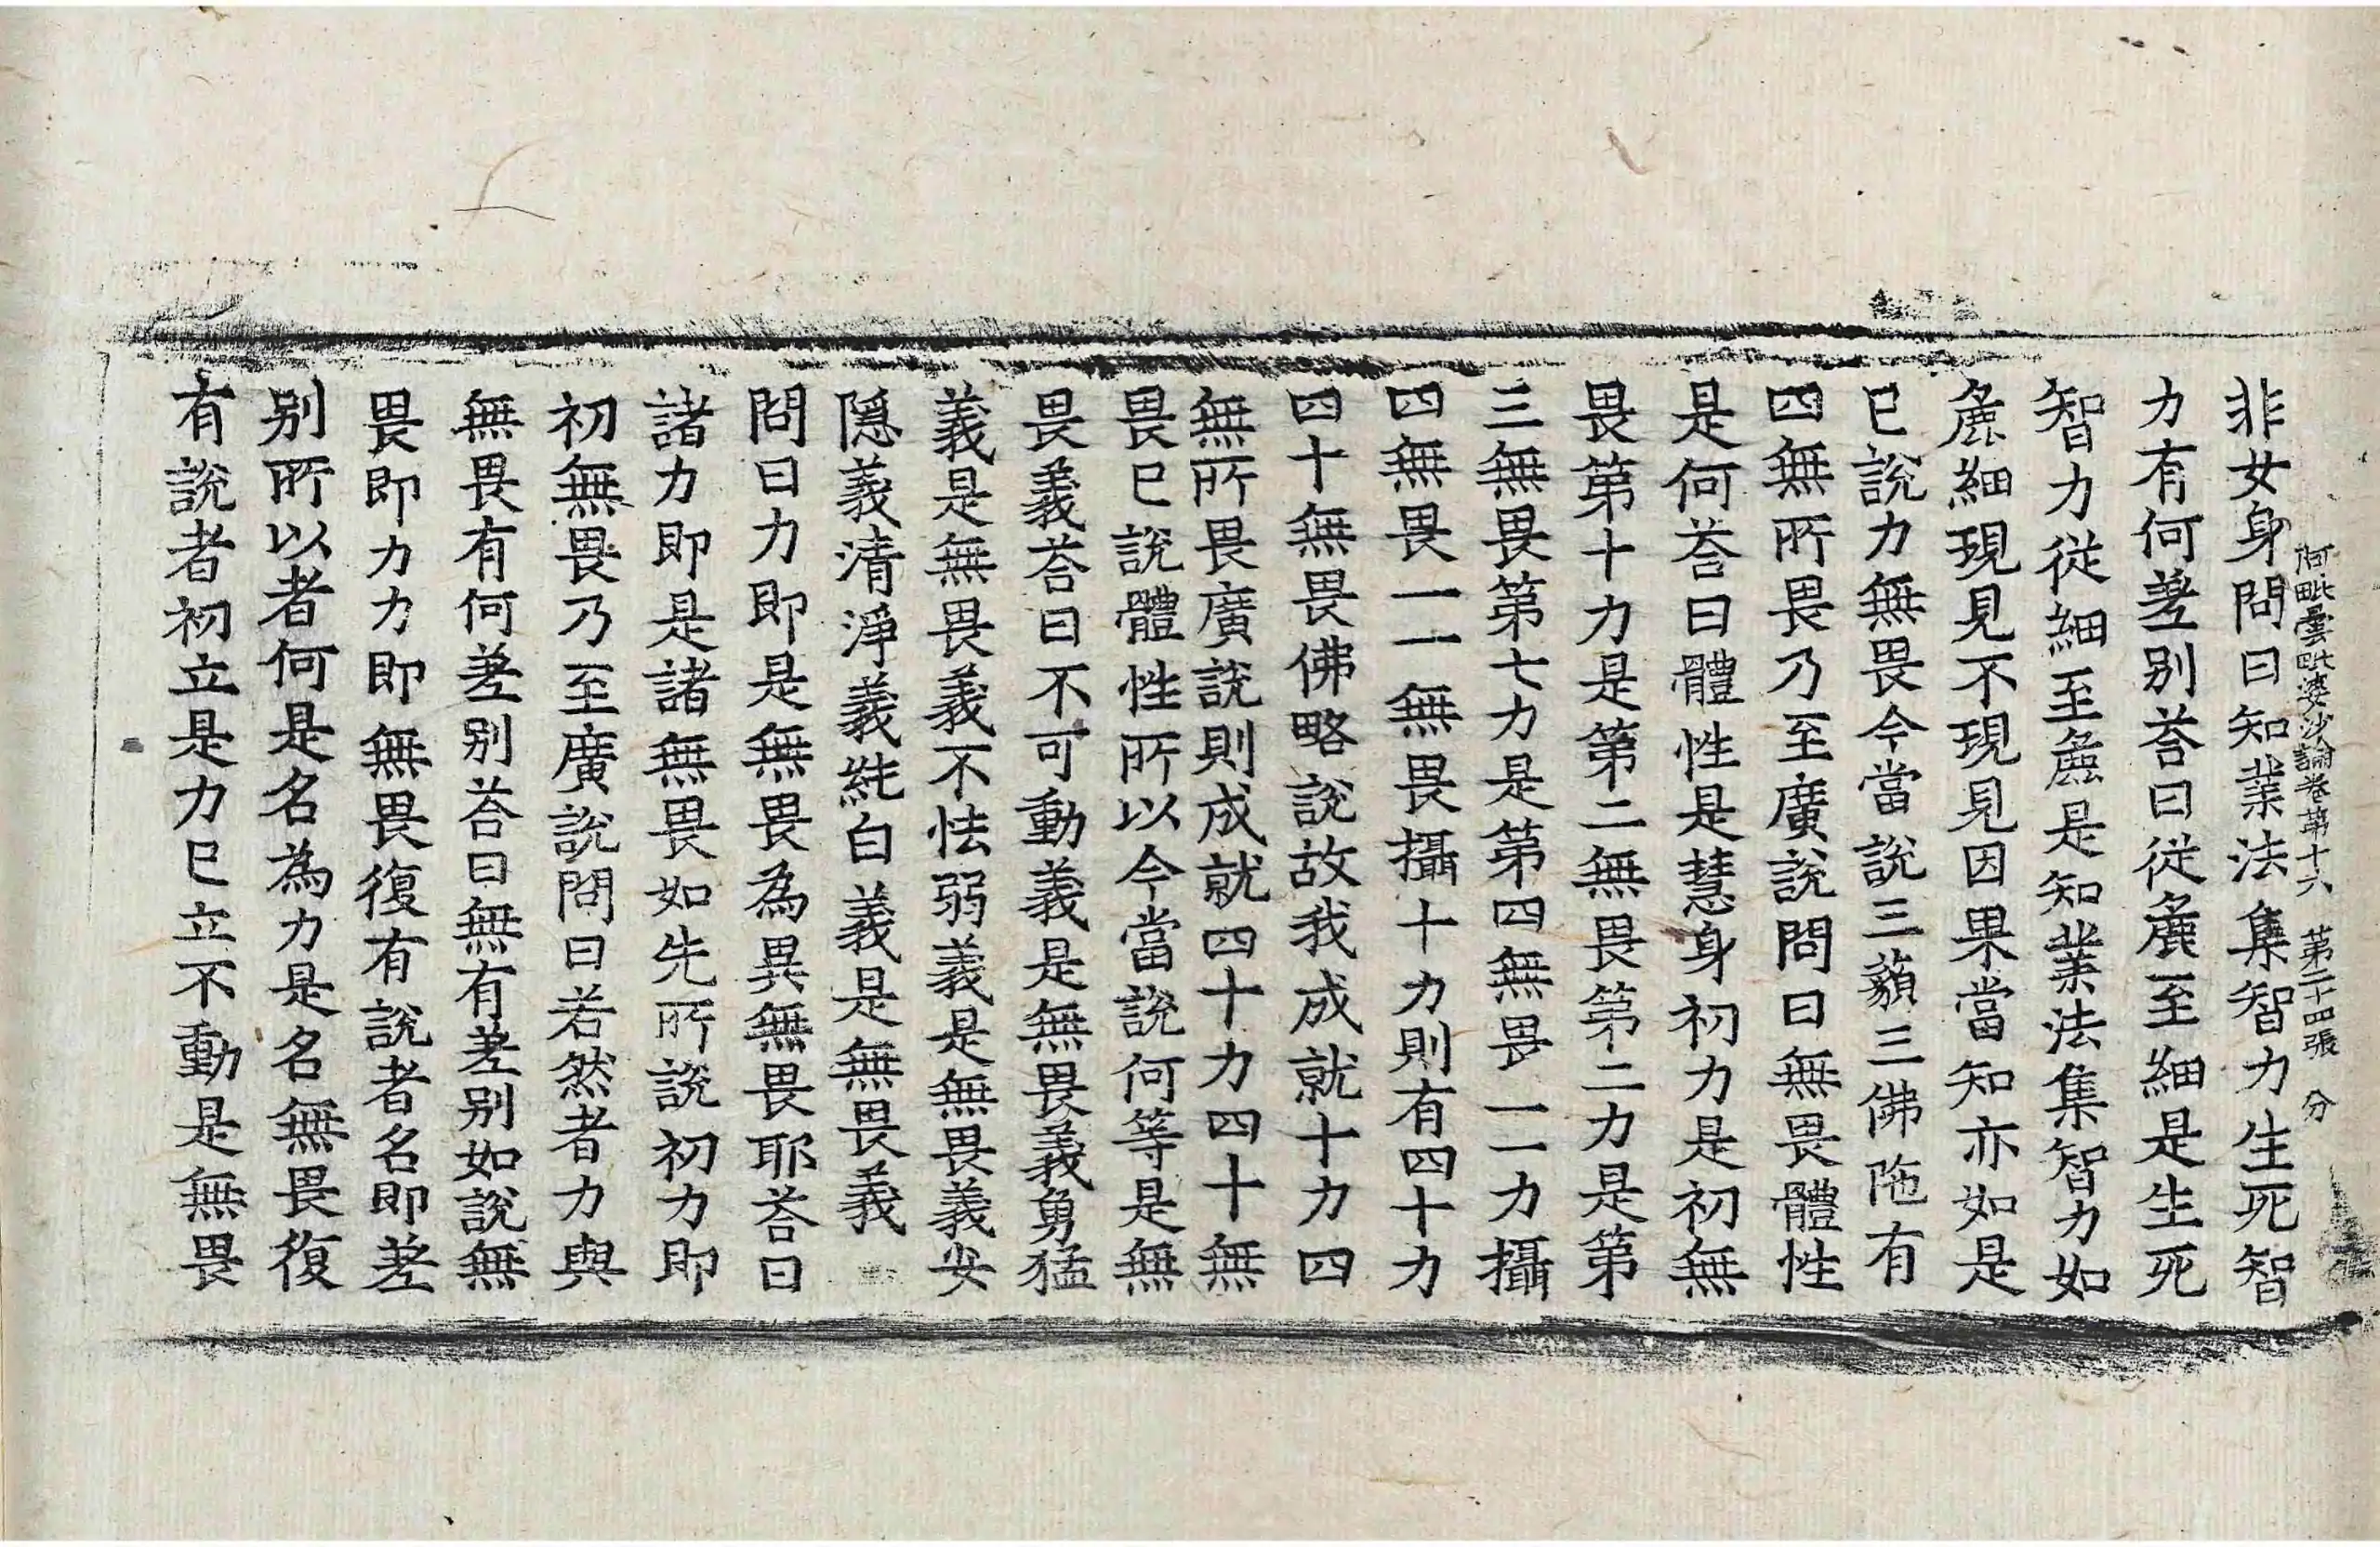 阿毗曇毗婆沙論卷第十六　第二十四張　分
非女身問曰知業法集智力生死智
力有何差別荅曰從麁至細是生死
智力從細至麁是知業法集智力如
麁細現見不現見因果當知亦如是
已說力無畏今當說三藐三佛陁有
四無所畏乃至廣說問曰無畏體性
是何荅曰體性是慧身初力是初無
畏第十力是第二無畏第二力是第
三無畏第七力是第四無畏一一力攝
四無畏一一無畏攝十力則有四十力
四十無畏佛略說故我成就十力四
無所畏廣說則成就四十力四十無
畏已說體性所以今當說何等是無
畏義荅曰不可動義是無畏義勇猛
義是無畏義不怯弱義是無畏義安
隱義清淨義純白義是無畏義
問曰力即是無畏為異無畏耶荅曰
諸力即是諸無畏如先所說初力即
初無畏乃至廣說問曰若然者力與
無畏有何差別荅曰無有差別如說無
畏即力力即無畏復有說者名即差
別所以者何是名為力是名無畏復
有說者初立是力已立不動是無畏